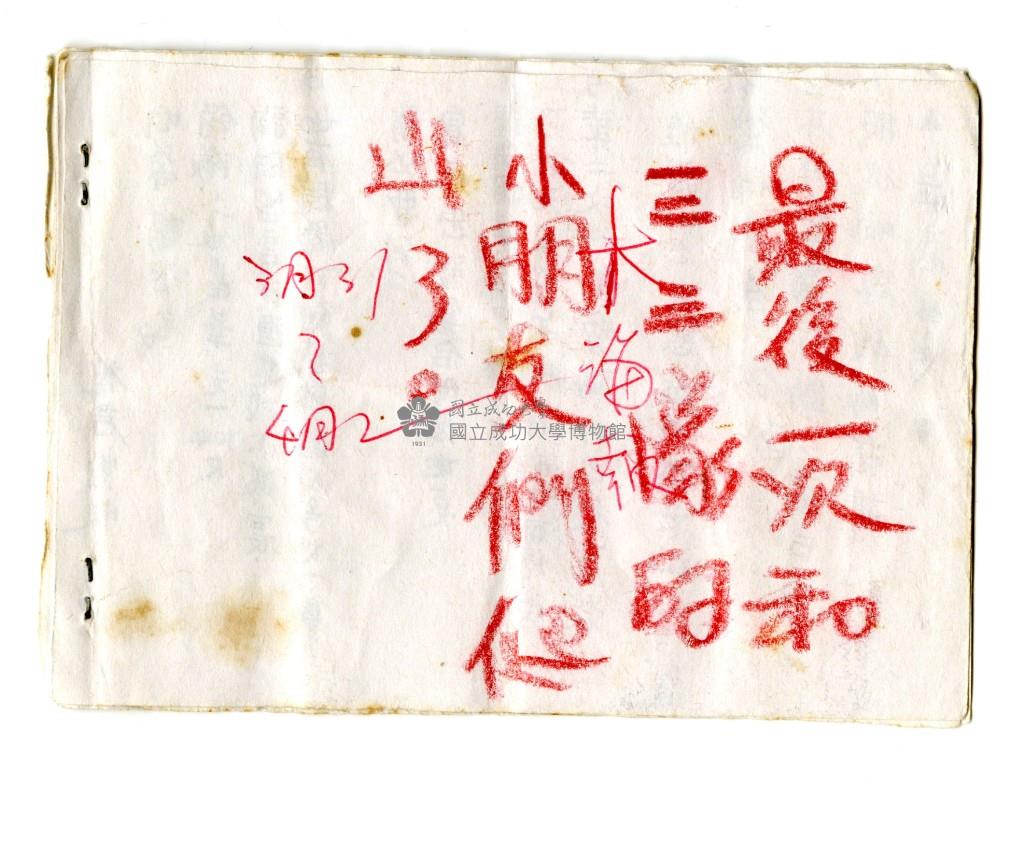 最後一次和
三三隊的
大海報
小朋友們爬
山了。
3月31
~
4月2
國立成功大學
國立成功大學博物館
1931